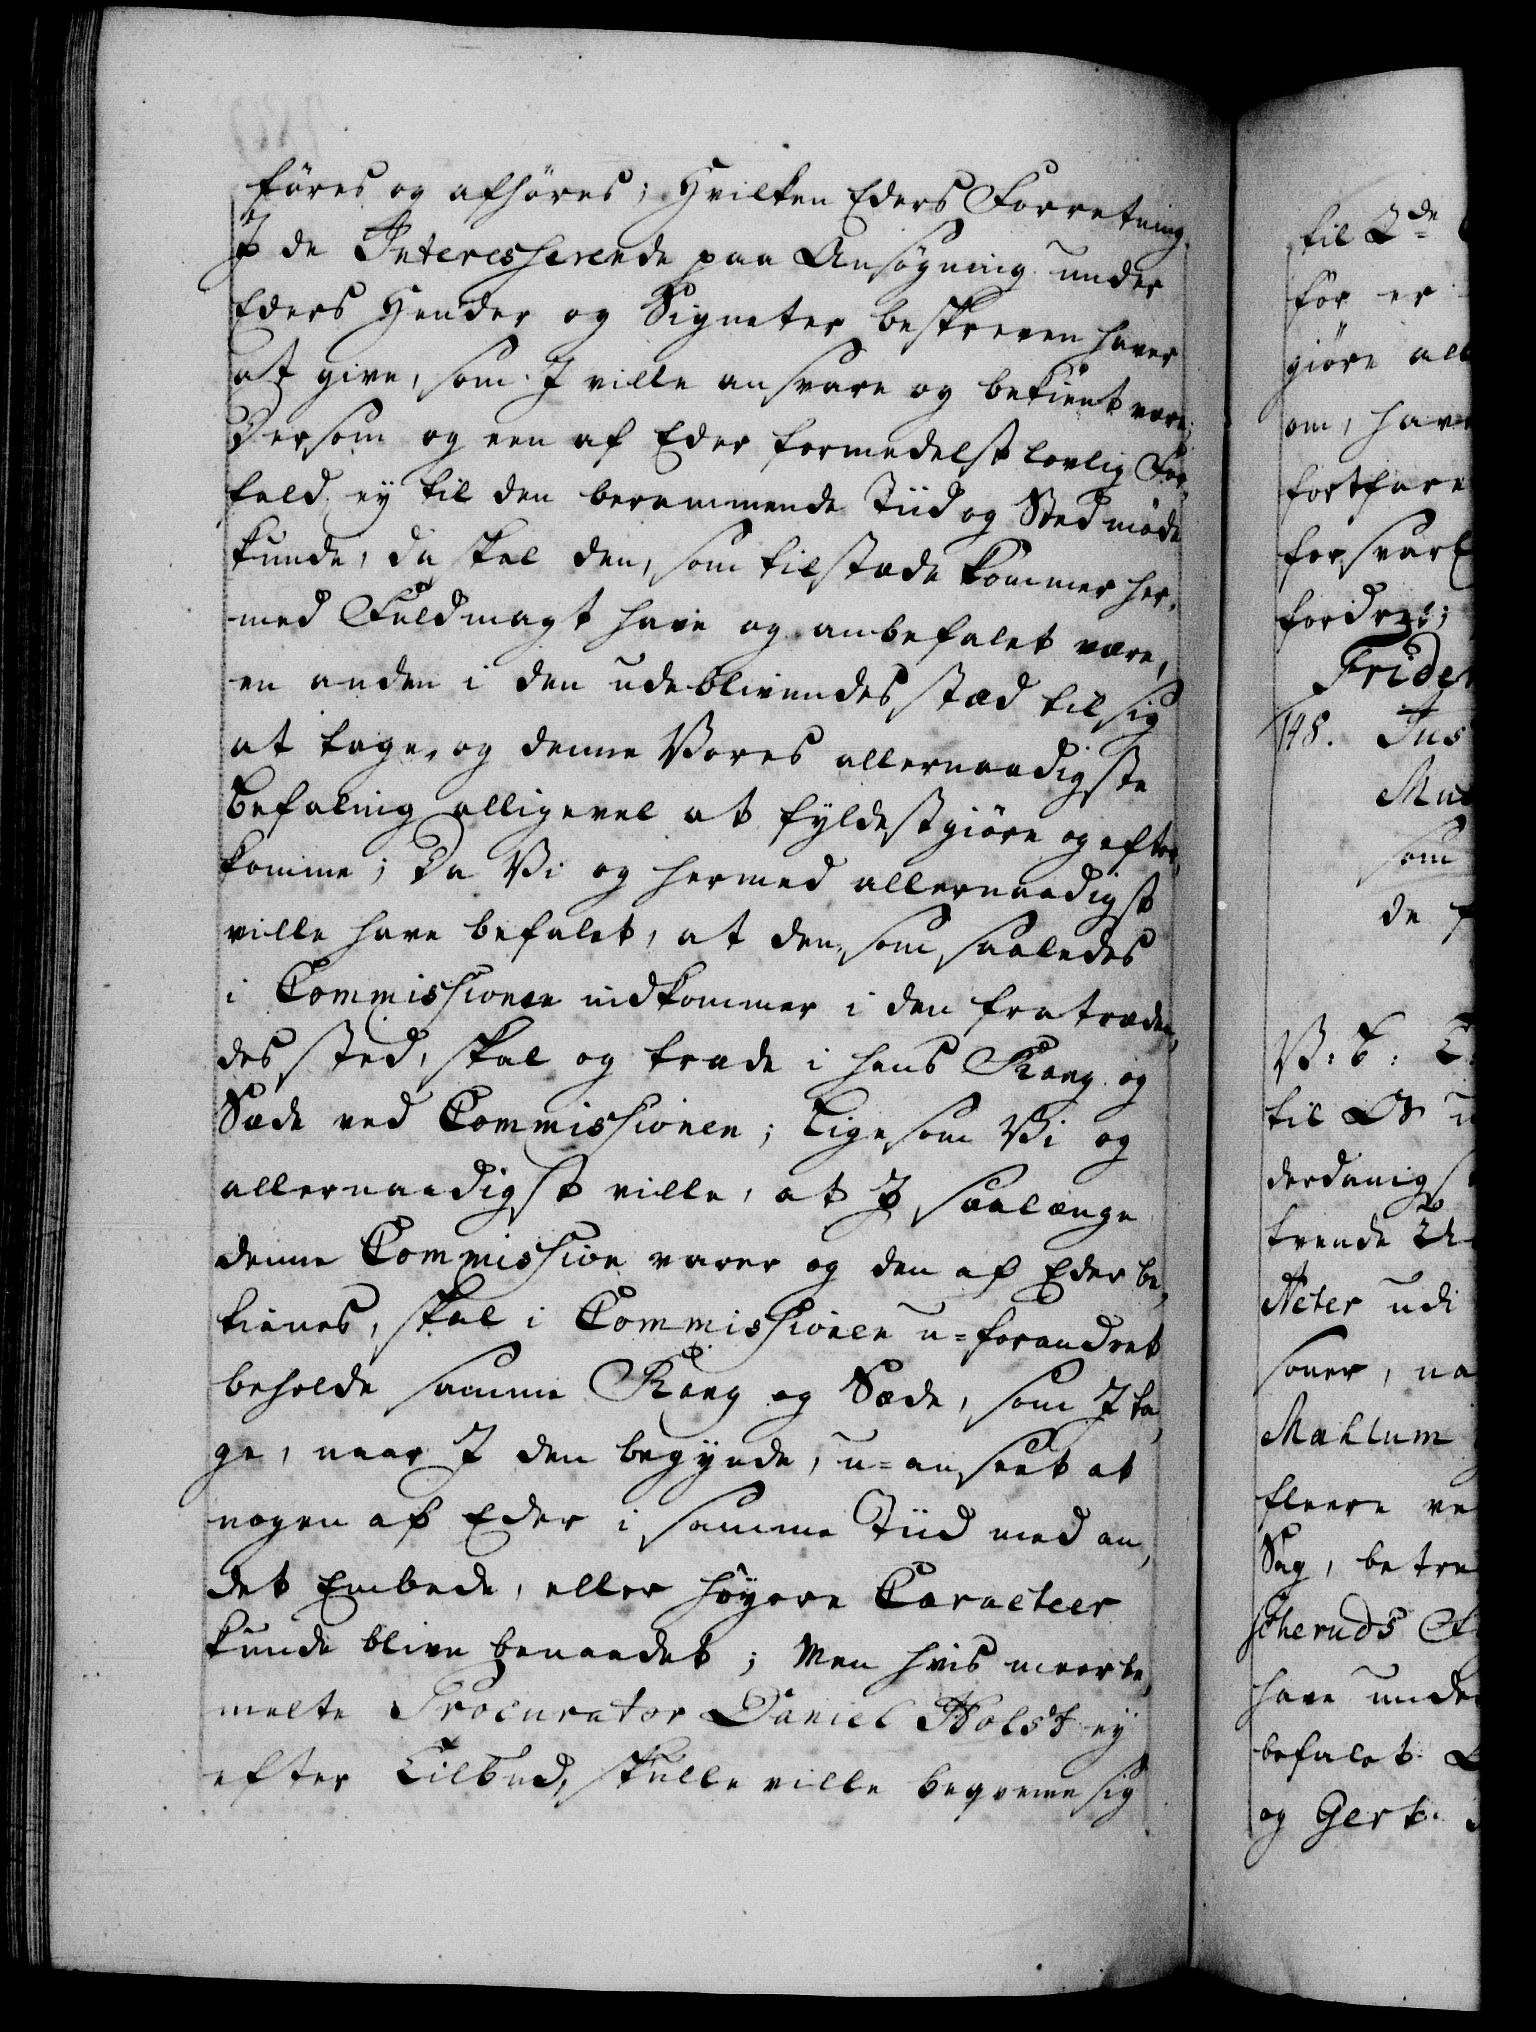 føres og afhøres; Hvilken Eders Forretning
I de Interesserende paa Ansøgning under
Eders Hænder og Signeter beskreven haver
at give, som I ville ansvare og bekient være;
Dersom og een af Eder formedelst lovlig For„
fald ey til den berammende Tiid og Sted møde
kunde, da skal den, som tilstæde kommer her„
med Fuldmagt have og anbefalet være,
en anden i den udeblivendes stæd til sig
at tage, og denne Vores allernaadigste
Befaling alligevel at fyldestgiøre og efter„
komme; Da Vi og hermed allernaadigst
ville have befalet, at den, som saaledes
i Commissionen indkommer i den fratræden„
des sted, skal og træde i hans Rang og
Sæde ved Commissionen; Ligesom Vi og
allernaadigst ville, at I saalænge
denne Commission varer og den af Eder be„
tienes, skal i Commissionen u=forandret
beholde samme Rang og Sæde, som I ta„
ge, naar I den begynde, u=anseet at
nogen af Eder i samme Tiid med an„
det Embede, eller høyere Caracteer
kunde blive benaadet; Men hvis meerbe„
melte Procurator Daniel Holst ey
efter Tilbud, skulle ville beqveme sig
til 2de
før er
giøre all
om, hav
fortfare
forsvarl
fordres;
Frider
148. Jus
Mut
som
de f
V: G: T:
til Os u
derdanigs
trende
Acter udi
soner, na
Mæhlum
fleere ve
Sag, betre
scheruds
have unde
befalet
og Gert